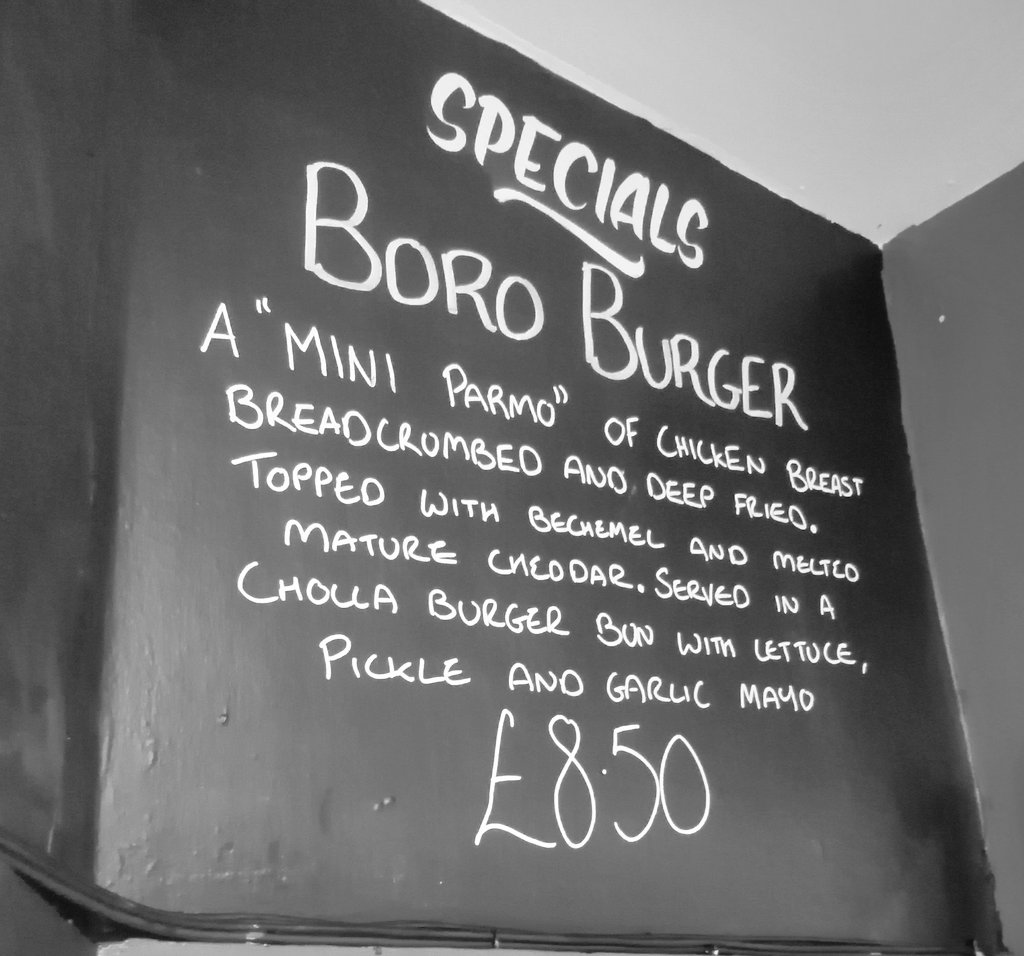 SPECIALS
BORO BURGER
A "MINI PARMO" OF CHICKEN BREAST
BREADCRUMBED AND DEEP FRIED.
TOPPED WITH BECHEMEL AND MELTED
MATURE CHEDDAR. SERVED IN A
CHOLLA BURGER BUN WITH LETTUCE,
PICKLE AND GARLIC MAYO
£8.50